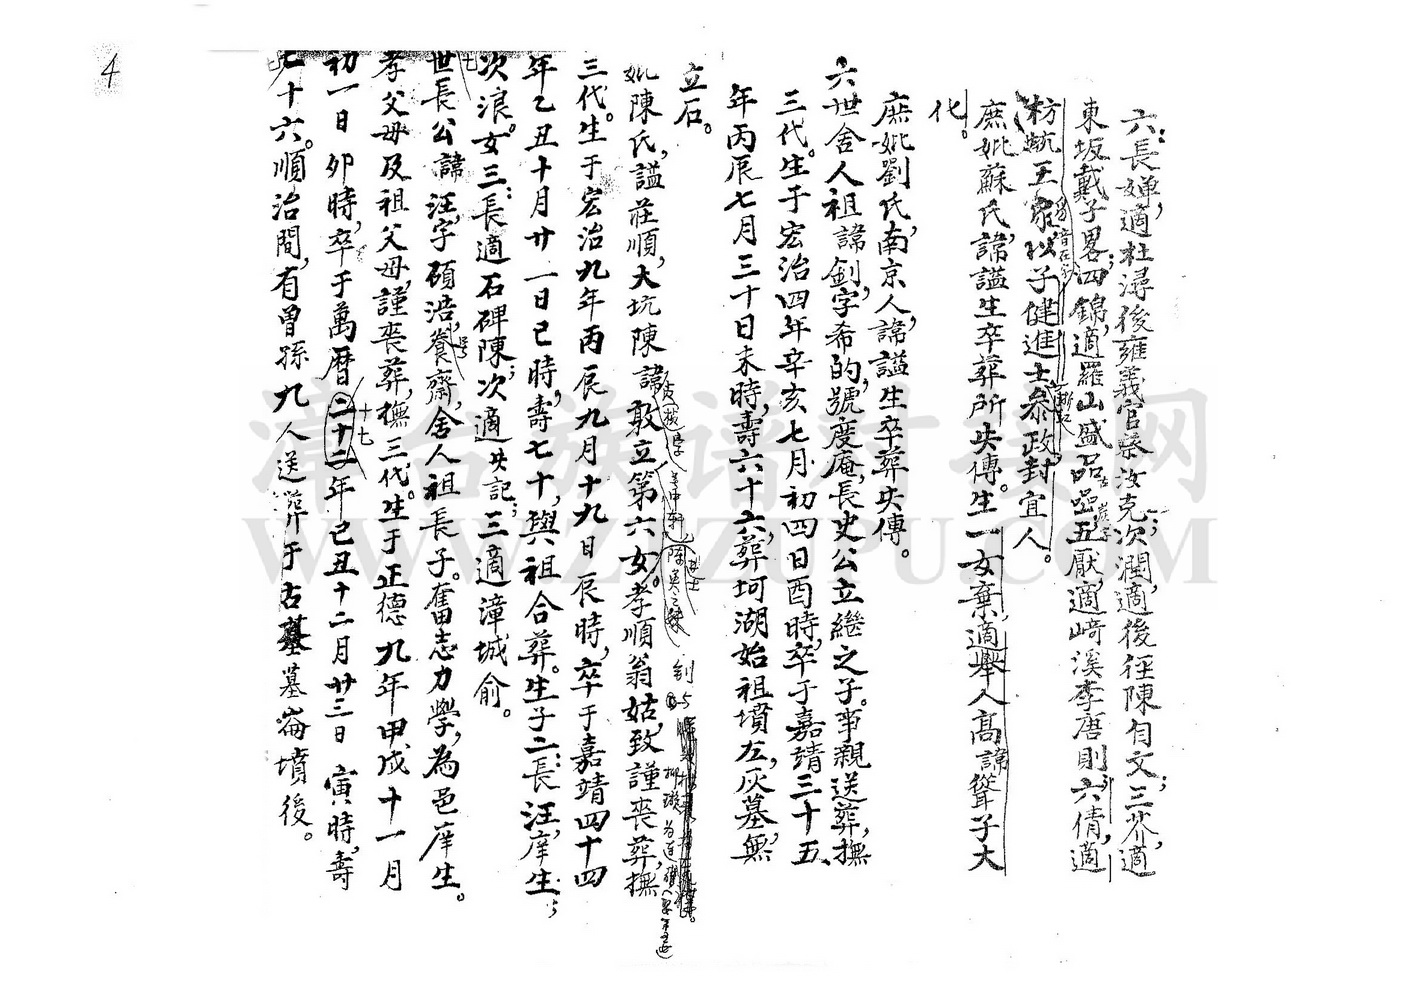 4
六:長嬋,適杜潯後雍義官蔡汝克;次潤,適後徑陳自文;三芥,適
東坂戴子畧;四錦,適羅山盛品;五厭,適﨑溪李唐則;六倩,適
枋 王 以子健進士叅政封宜人。
庶妣蘇氏,諱諡生卒葬所失傳。生一女棄,適舉人高諱聳子大
化。
庶妣劉氏,南京人,諱諡生卒葬失傳。
六世舍人祖諱釗,字希的,號度庵,長史公立繼之子。事親送葬,撫
三代。生于宏治四年辛亥七月初四日酉時,卒于嘉靖三十五
年丙辰七月三十日未時,壽六十六,葬坷湖始祖墳左,灰墓,無
立石。
釗
妣陳氏,諡莊順,大坑陳諱敦立第六女。孝順翁姑,致謹喪葬,撫
三代。生于宏治九年丙辰九月十九日辰時,卒于嘉靖四十四
年乙丑十月廿一日巳時,壽七十,與祖合葬。生子二:長汪,庠生;
次浪。女三:長適石碑陳;次適失記;三適漳城俞。
七世長公諱汪,字碩浩,號養齋,舍人祖長子。奮志力學,為邑庠生。
孝父母及祖父母,謹喪葬,撫三代。生于正德九年甲戌十一月
初一日卯時,卒于萬曆二十二年己丑十二月廿三日寅時,壽
十七
七十六。順治間,有曾孫九人送葬于古墓墓崙墳後。
漳台族谱对接网
WWW.ZTZUPU.COM